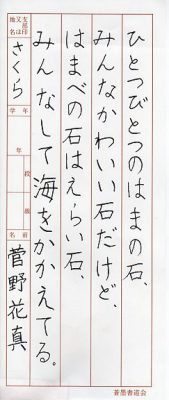 ひとつびとつのはまの石、
みんなかわいい石だけど、
はまべの石はえらい石、
みんなして海をかかえてる。
支部印又は地名
さくら
学年
年
段
級
名前
菅野花真
書道会